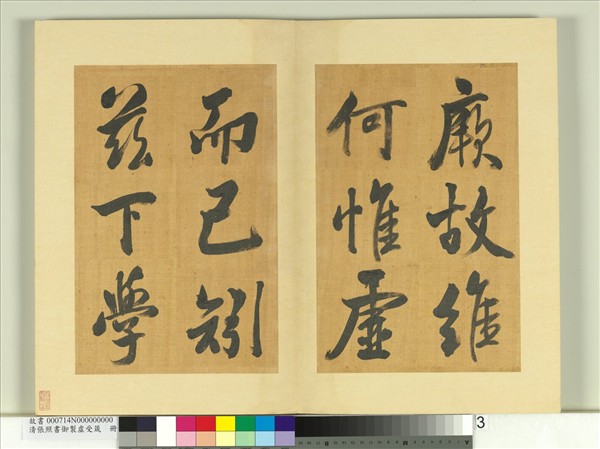 厥故維
何惟虛
而已矧
茲下學
故書 000714N000000000
清張照書御製虛受箴 冊
3